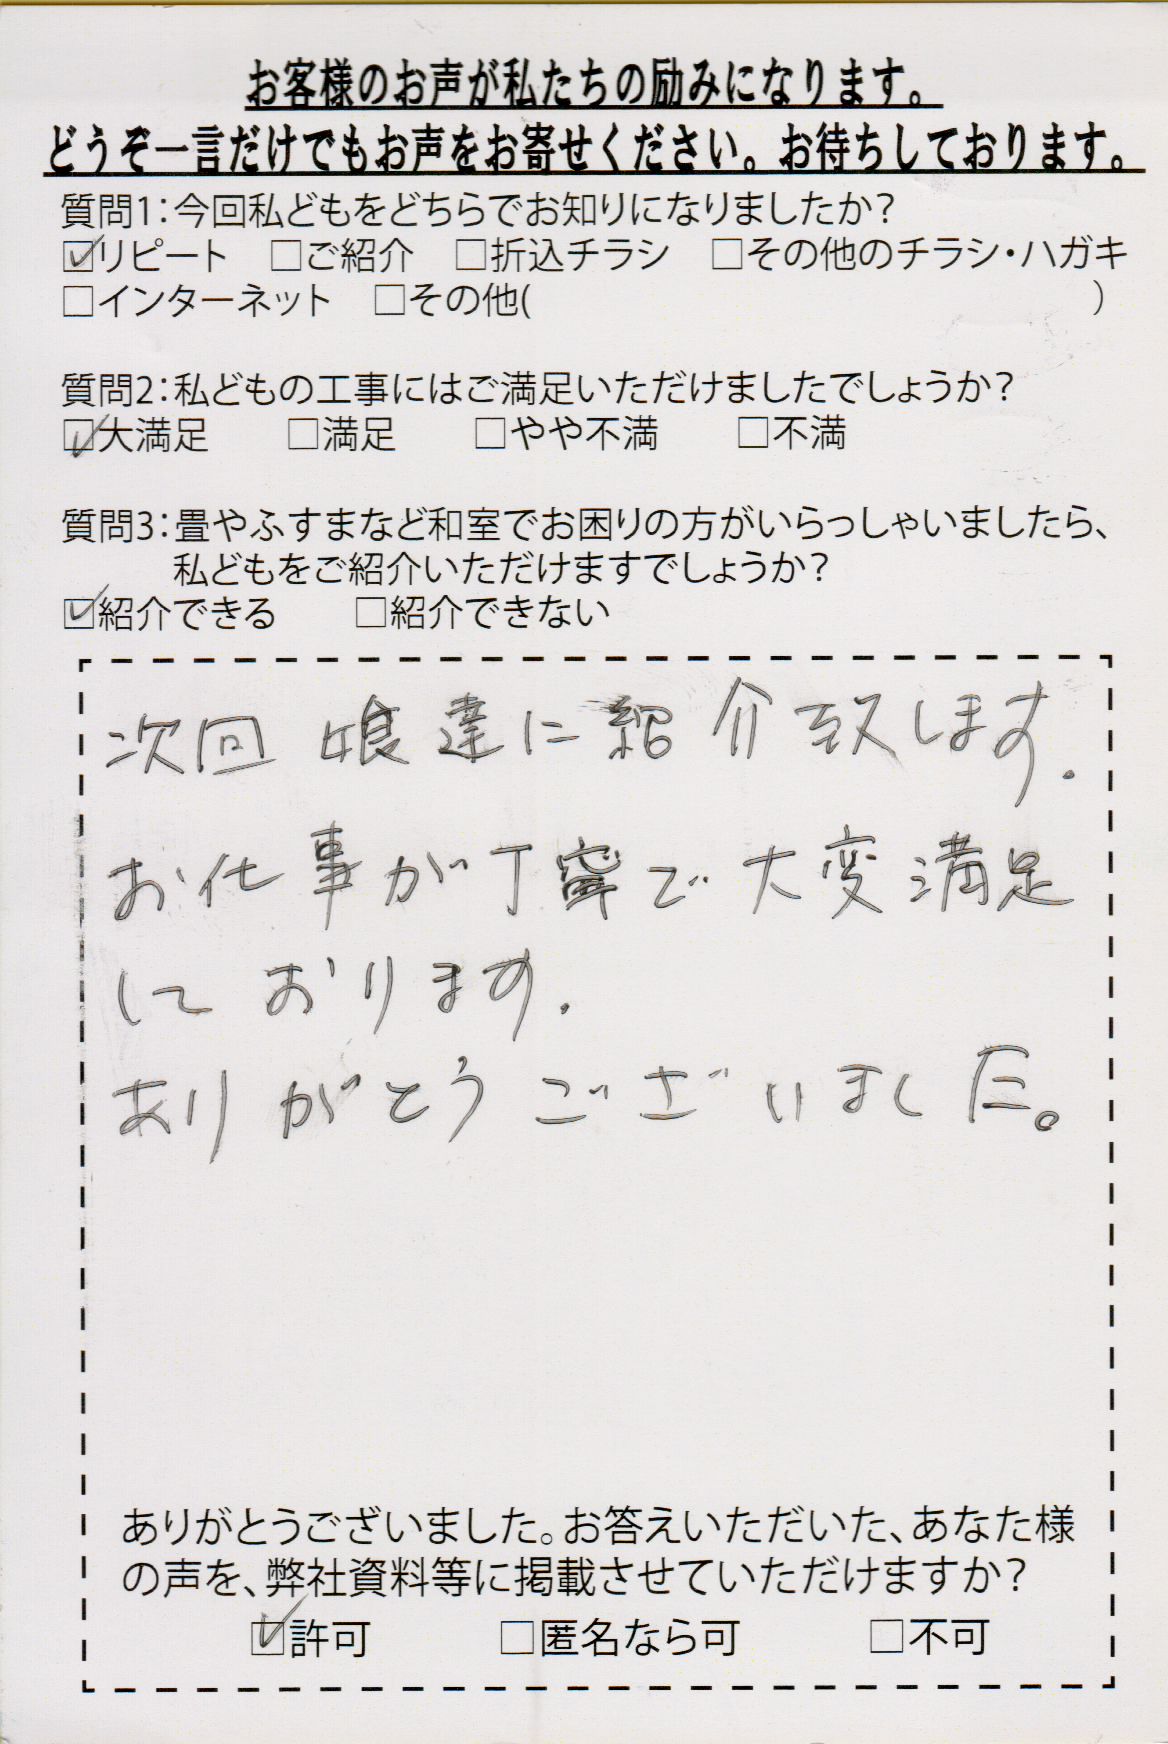 お客様のお声が私たちの励みになります。
どうぞ一言だけでもお声をお寄せください。お待ちしております。
質問1：今回私どもをどちらでお知りになりましたか？
☑リピート　□ご紹介　□折込チラシ　□その他のチラシ・ハガキ
□インターネット　□その他(　　　　　　　　　　　　　　　)
質問2：私どもの工事にはご満足いただけましたでしょうか？
☑大満足　□満足　□やや不満　□不満
質問3：畳やふすまなど和室でお困りの方がいらっしゃいましたら、
私どもをご紹介いただけますでしょうか？
☑紹介できる　□紹介できない
次回 娘達に紹介致します.
お仕事が丁寧で大変満足
しております.
ありがとうございました。
ありがとうございました。お答えいただいた、あなた様
の声を、弊社資料等に掲載させていただけますか？
☑許可　□匿名なら可　□不可